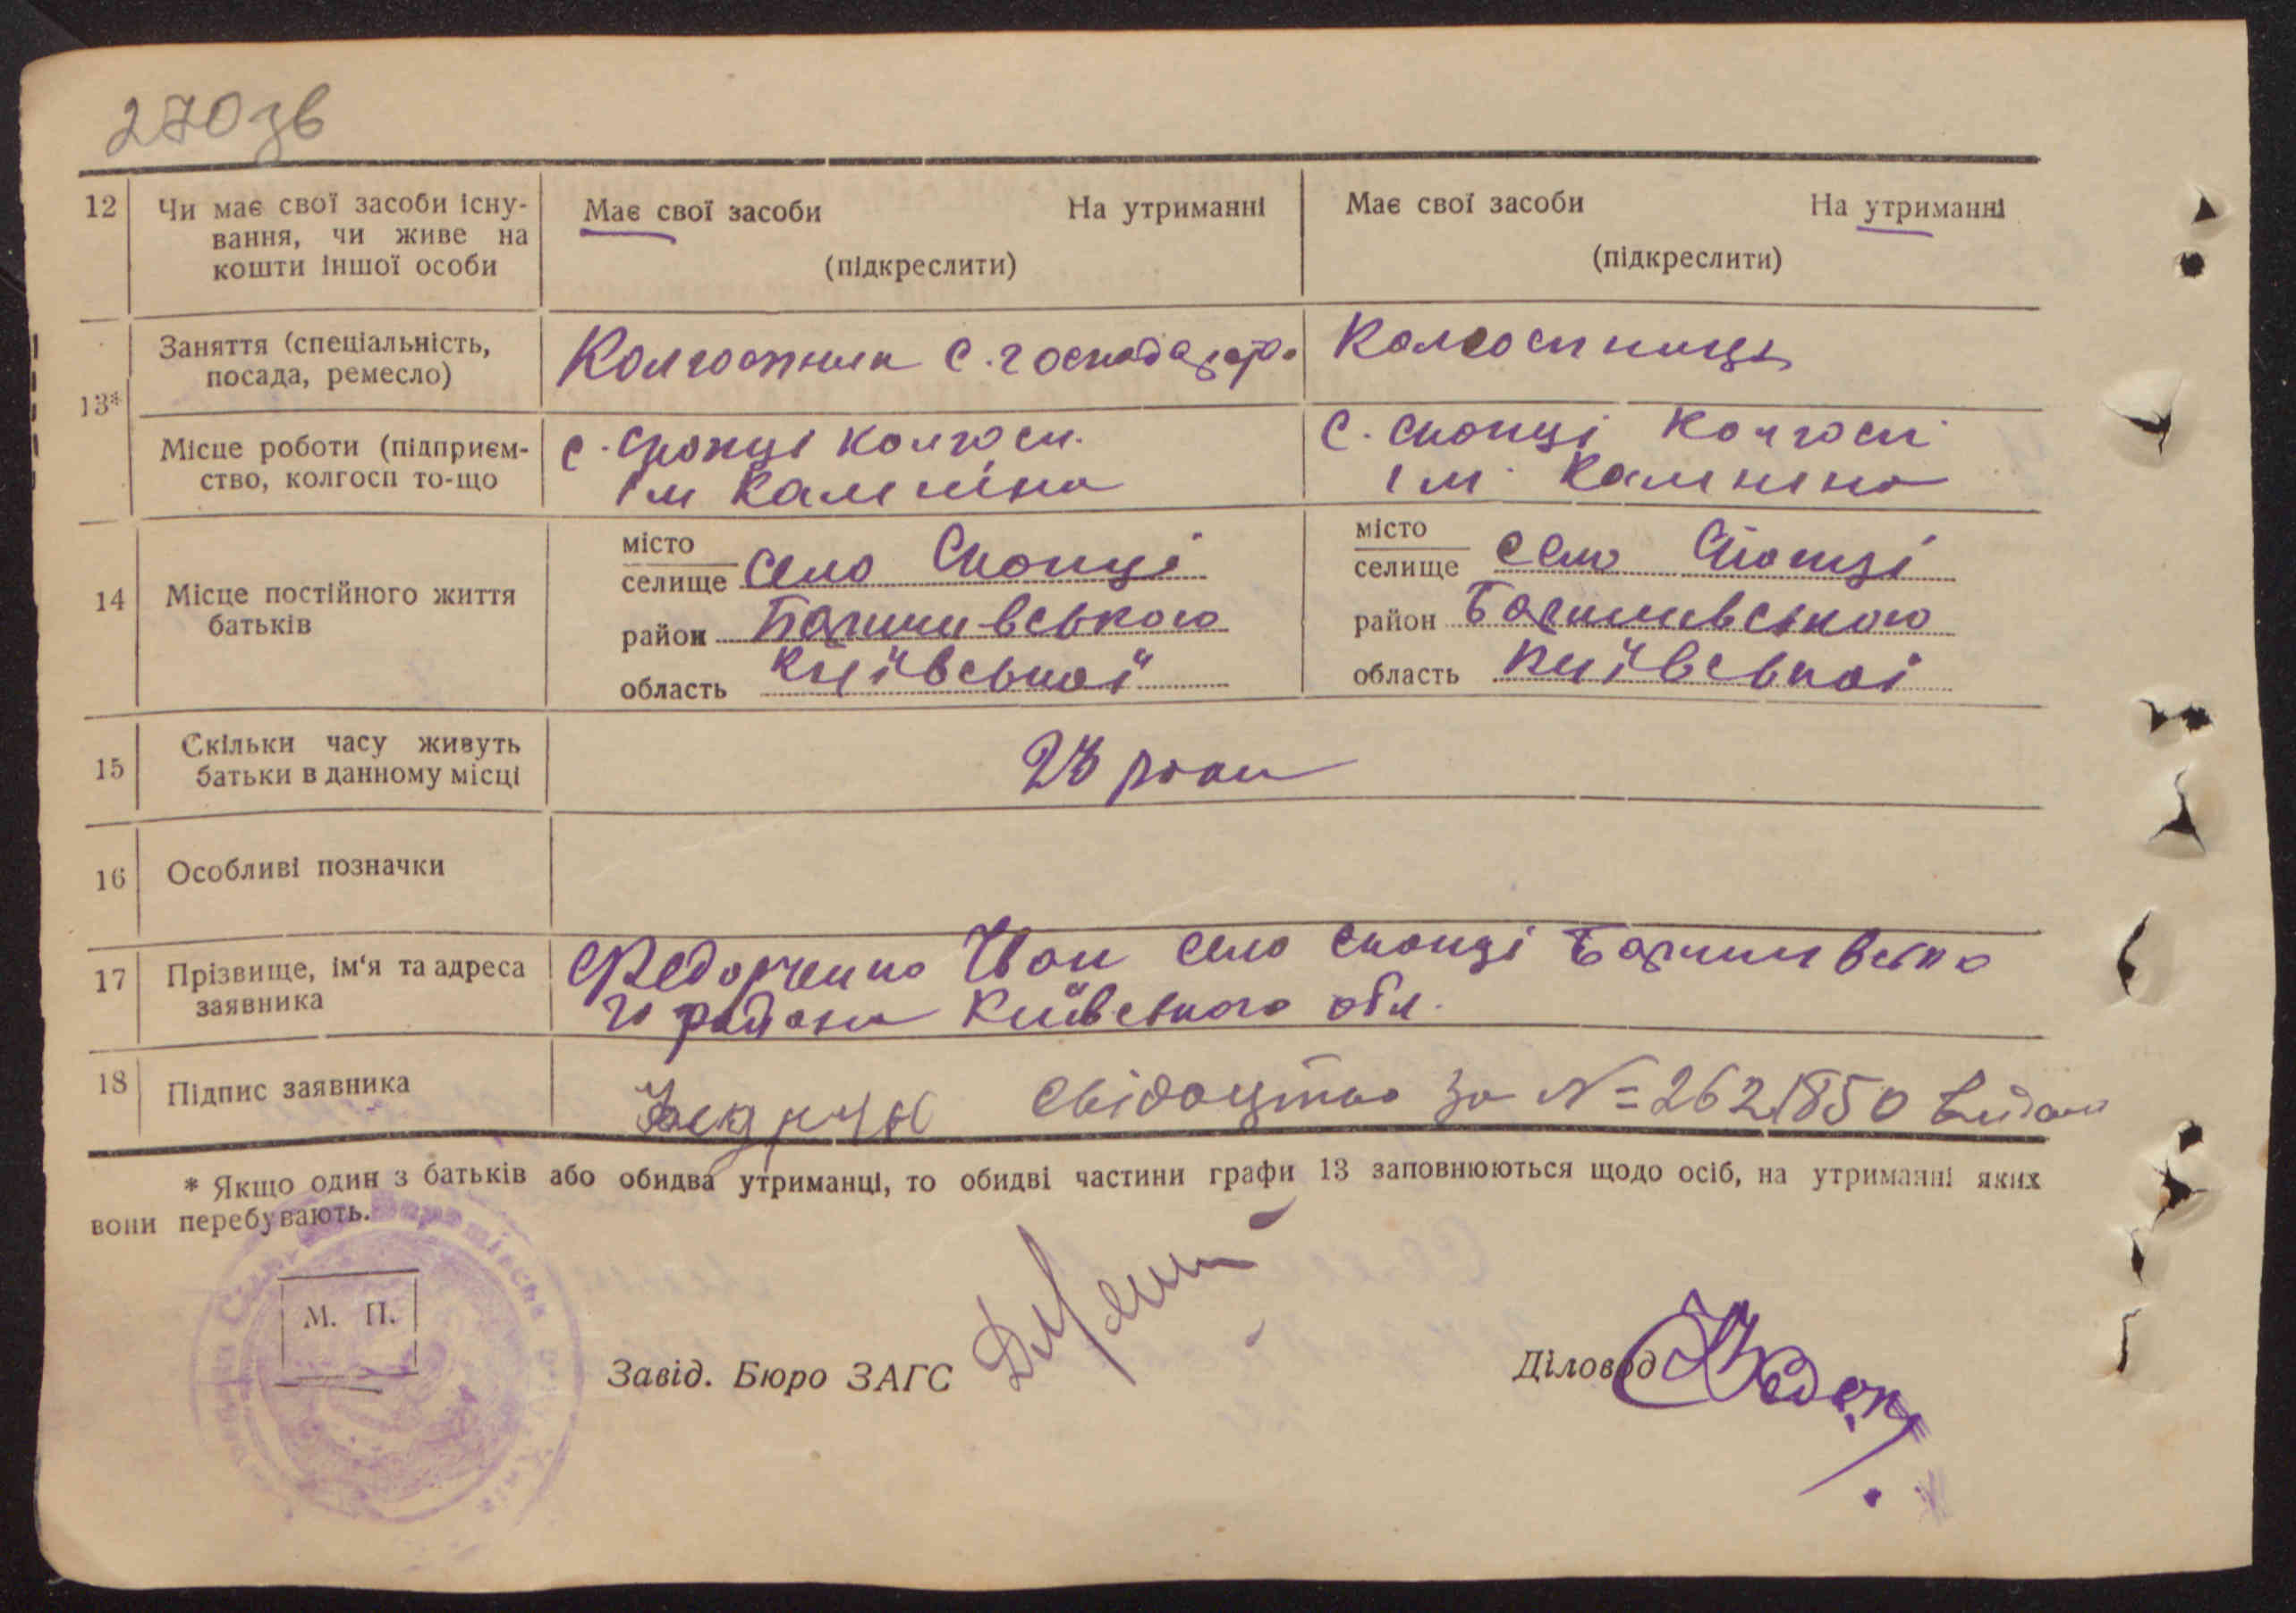 270 зв
12 Чи має свої засоби існу-
вання, чи живе на
кошти іншої особи
Має свої засоби На утриманні
(підкреслити)
Має свої засоби На утриманні
(підкреслити)
13*
Заняття (спеціальність,
посада, ремесло)
Колгоспник с. господар.
Колгоспниця
Місце роботи (підприєм-
ство, колгосп то-що
с. Скопці колгосп.
ім Калініна
с. Скопці Колгосп
ім. Калініна
14 Місце постійного життя
батьків
місто
селище село Скопці
район Баришивського
область Київської
місто
селище село Скопці
район Баришивського
область Київскої
15 Скільки часу живуть
батьки в данному місці
23 роки
16 Особливі позначки
17 Прізвище, ім‘я та адреса
заявника
Федорченко Іван село Скопці Баришивсько
го району Київського обл.
18 Підпис заявника
Свідоцтво за N=2621850 видано
* Якщо один з батьків або обидва утриманці, то обидві частини графи 13 заповнюються щодо осіб, на утриманні яких
вони перебувають.
М. П.
Завід. Бюро ЗАГС
Діловод